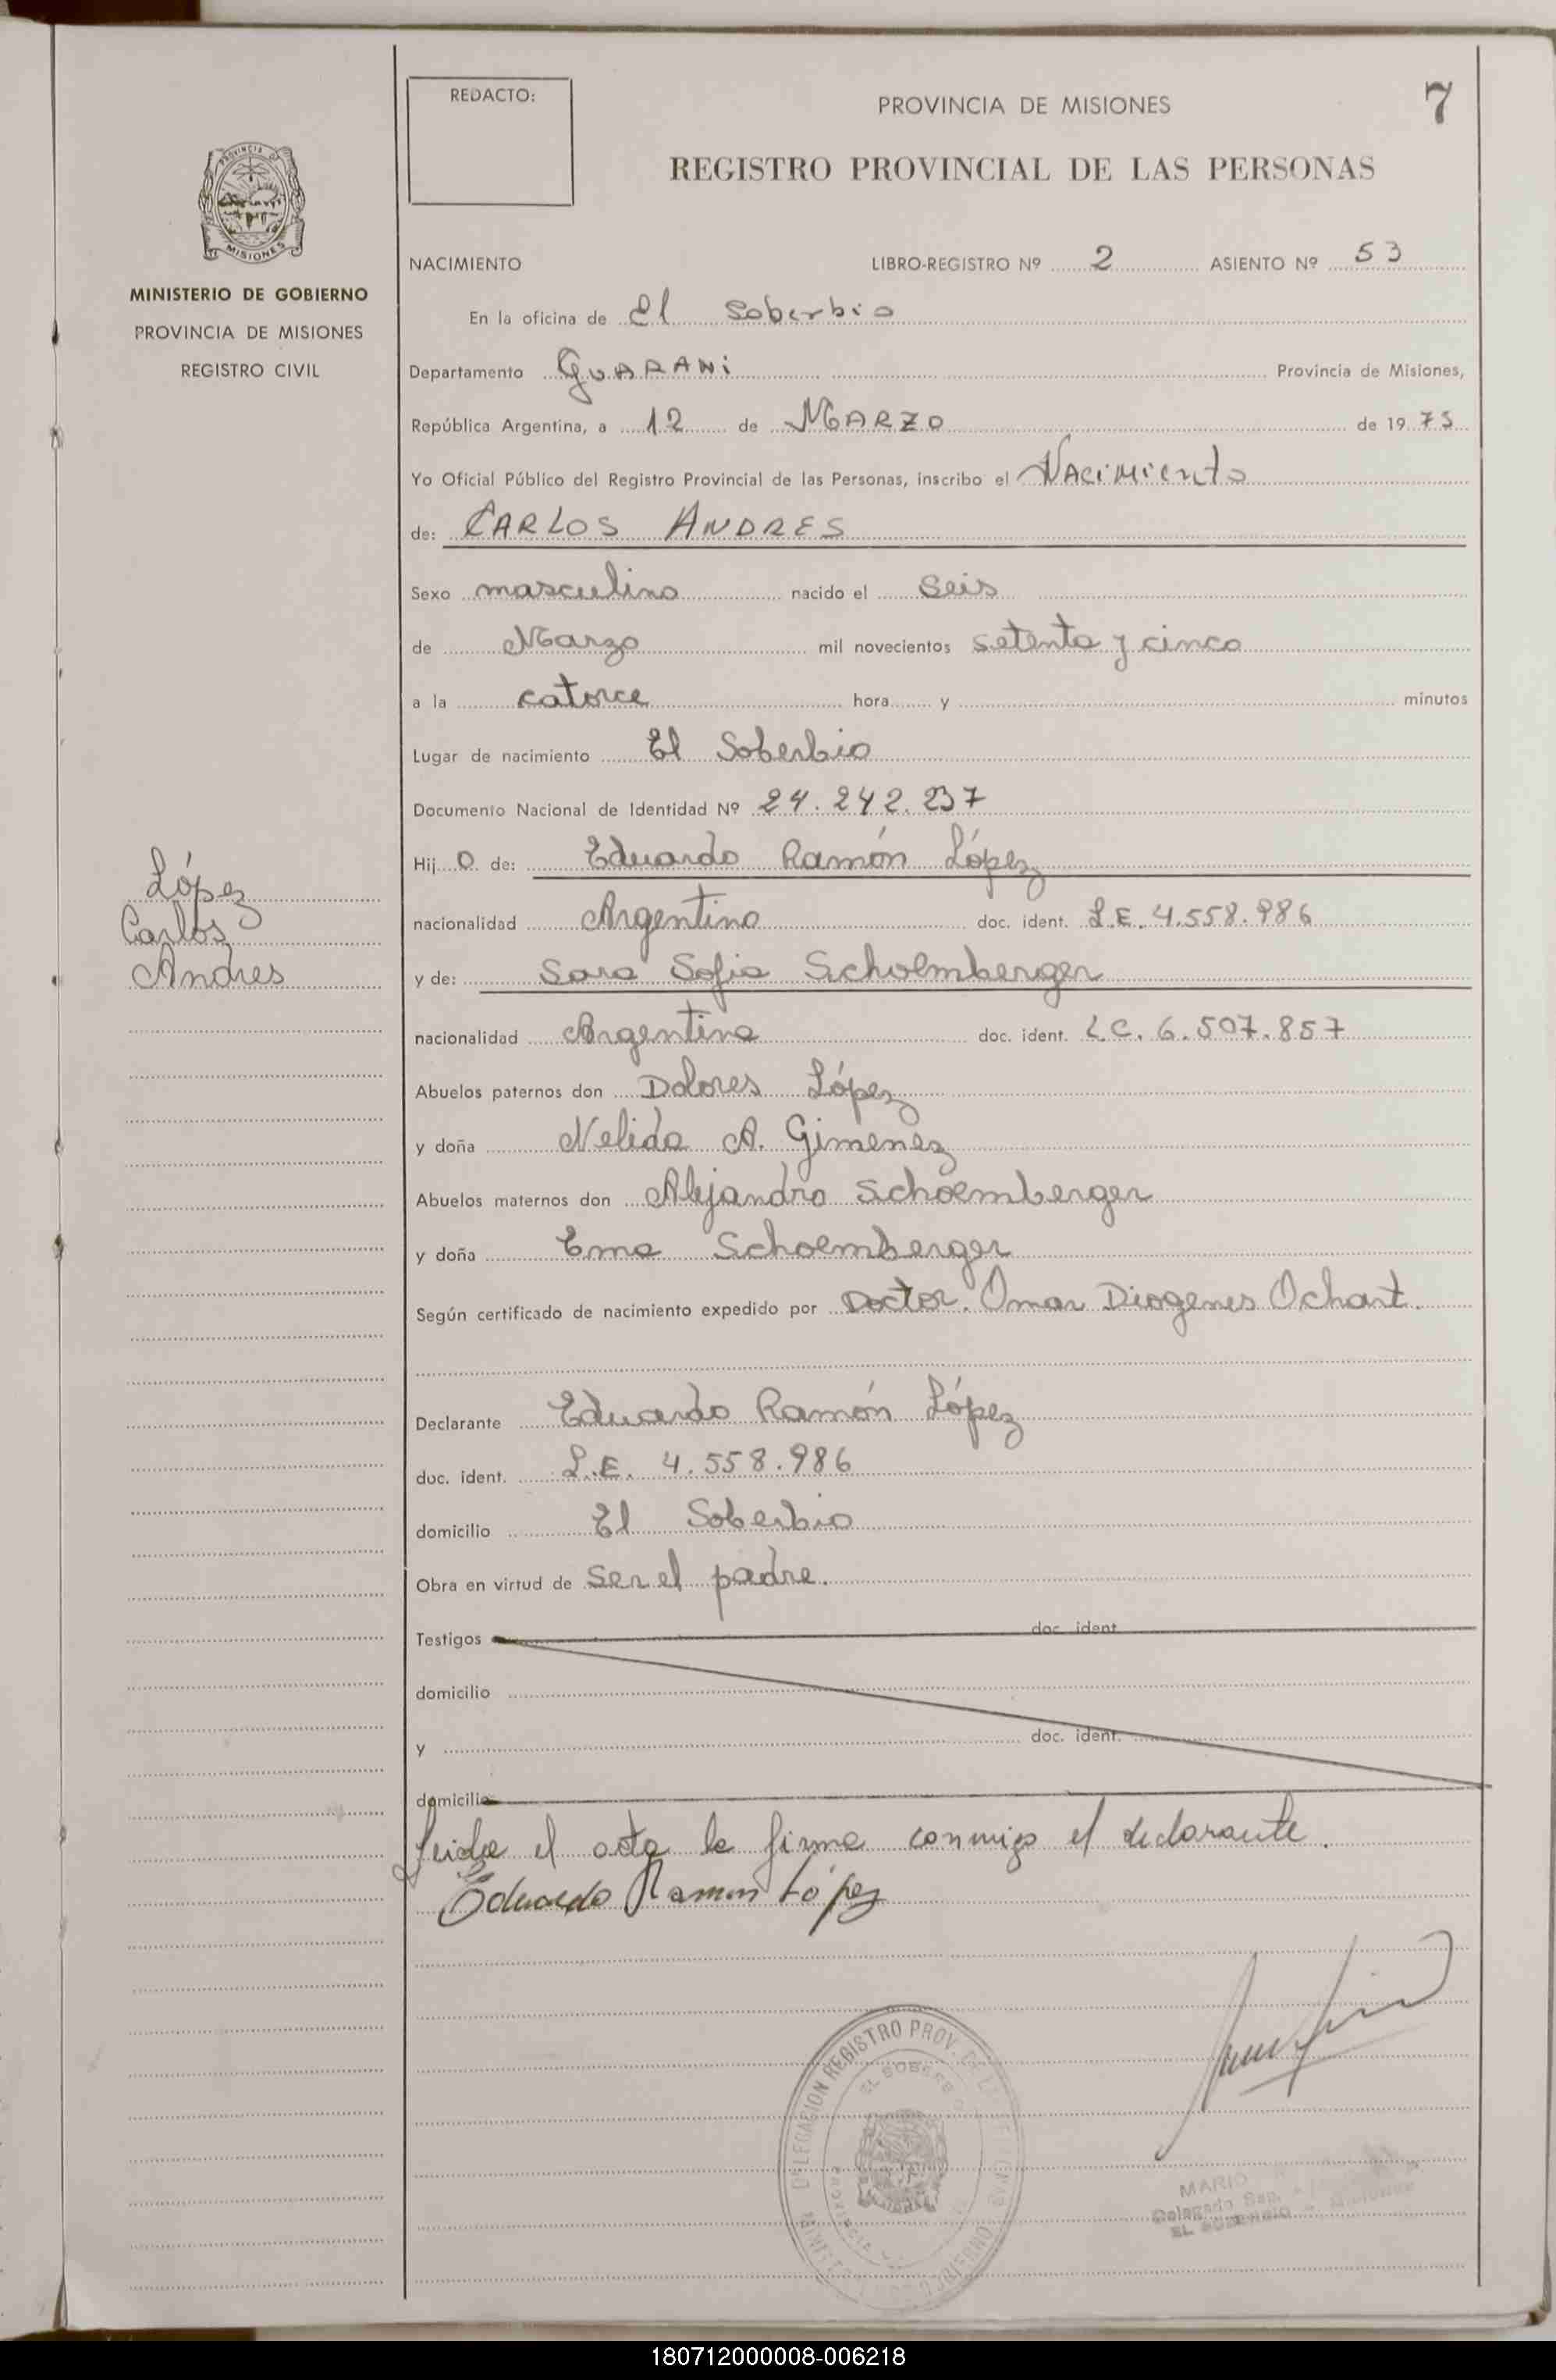 REDACTO:
PROVINCIA DE MISIONES
7
REGISTRO PROVINCIAL DE LAS PERSONAS
PROVINCIA DE
MISIONES
MINISTERIO DE GOBIERNO
PROVINCIA DE MISIONES
REGISTRO CIVIL
López
Carlos
Andres
NACIMIENTO LIBRO-REGISTRO Nº 2 ASIENTO Nº 53
En la oficina de El Soberbio
Departamento GUARANI Provincia de Misiones,
República Argentina, a 12 de MARZO de 19 75
Yo Oficial Público del Registro Provincial de las Personas, inscribo el Nacimiento
de: CARLOS ANDRES
Sexo masculino nacido el Seis
de Marzo mil novecientos setenta y cinco
a la catorce hora y minutos
Lugar de nacimiento El Soberbio
Documento Nacional de Identidad Nº 24.242.237
Hij o de: Eduardo Ramón López
nacionalidad Argentino doc. ident. L.E. 4.558.986
y de: Sara Sofia Schoemberger
nacionalidad Argentina doc. ident. L.C. 6.507.857
Abuelos paternos don Dolores López
y doña Nelida A. Gimenez
Abuelos maternos don Alejandro Schoemberger
y doña Ema Schoemberger
Según certificado de nacimiento expedido por Doctor. Omar Diogenes Ochart.
Declarante Eduardo Ramón López
doc. ident. L.E. 4.558.986
domicilio El Soberbio
Obra en virtud de ser el padre.
Testigos doc. ident.
domicilio
y doc. ident.
domicilio
Leida el acta la firma conmigo el declarante.
Eduardo Ramon López
DELEGACION REGISTRO PROV. DE
EL SOBERBIO
MARIO
Delegado
EL SOBERBIO - Misiones
180712000008-006218